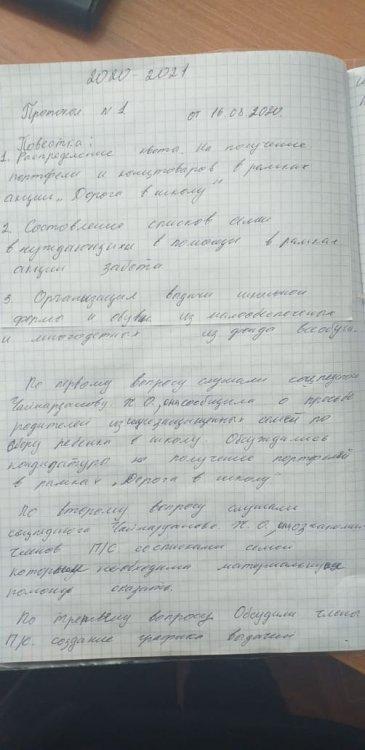 2020-2021
Протокол N 1 от 16.08.2020.
Повестка:
1. Распределение квота. На получение
портфели и концтоваров в рамках
акции „Дорога в школу"
2. Состовление списков семи
в нуждающихи в помощи в рамках
акции забота
3. Организация выдачи школьной
формы и обуви из малообеспеченных
и многодетных из фонда всеобуча.
По первому вопросу слушали соцпедагог
О, сообщила о просьбе
родителей из семей по
сбору ребенка в школу. Обуждались
кандидатуры на получение портфелей
в рамках „Дорога в школу"
По второму вопросу слушали
соцпедагога О, ознакомил
членов П/С со списками семей
которым необходима материальную
помощь оказать.
По третьему вопросу Обсудили члены
П/С. создание графика выдачи